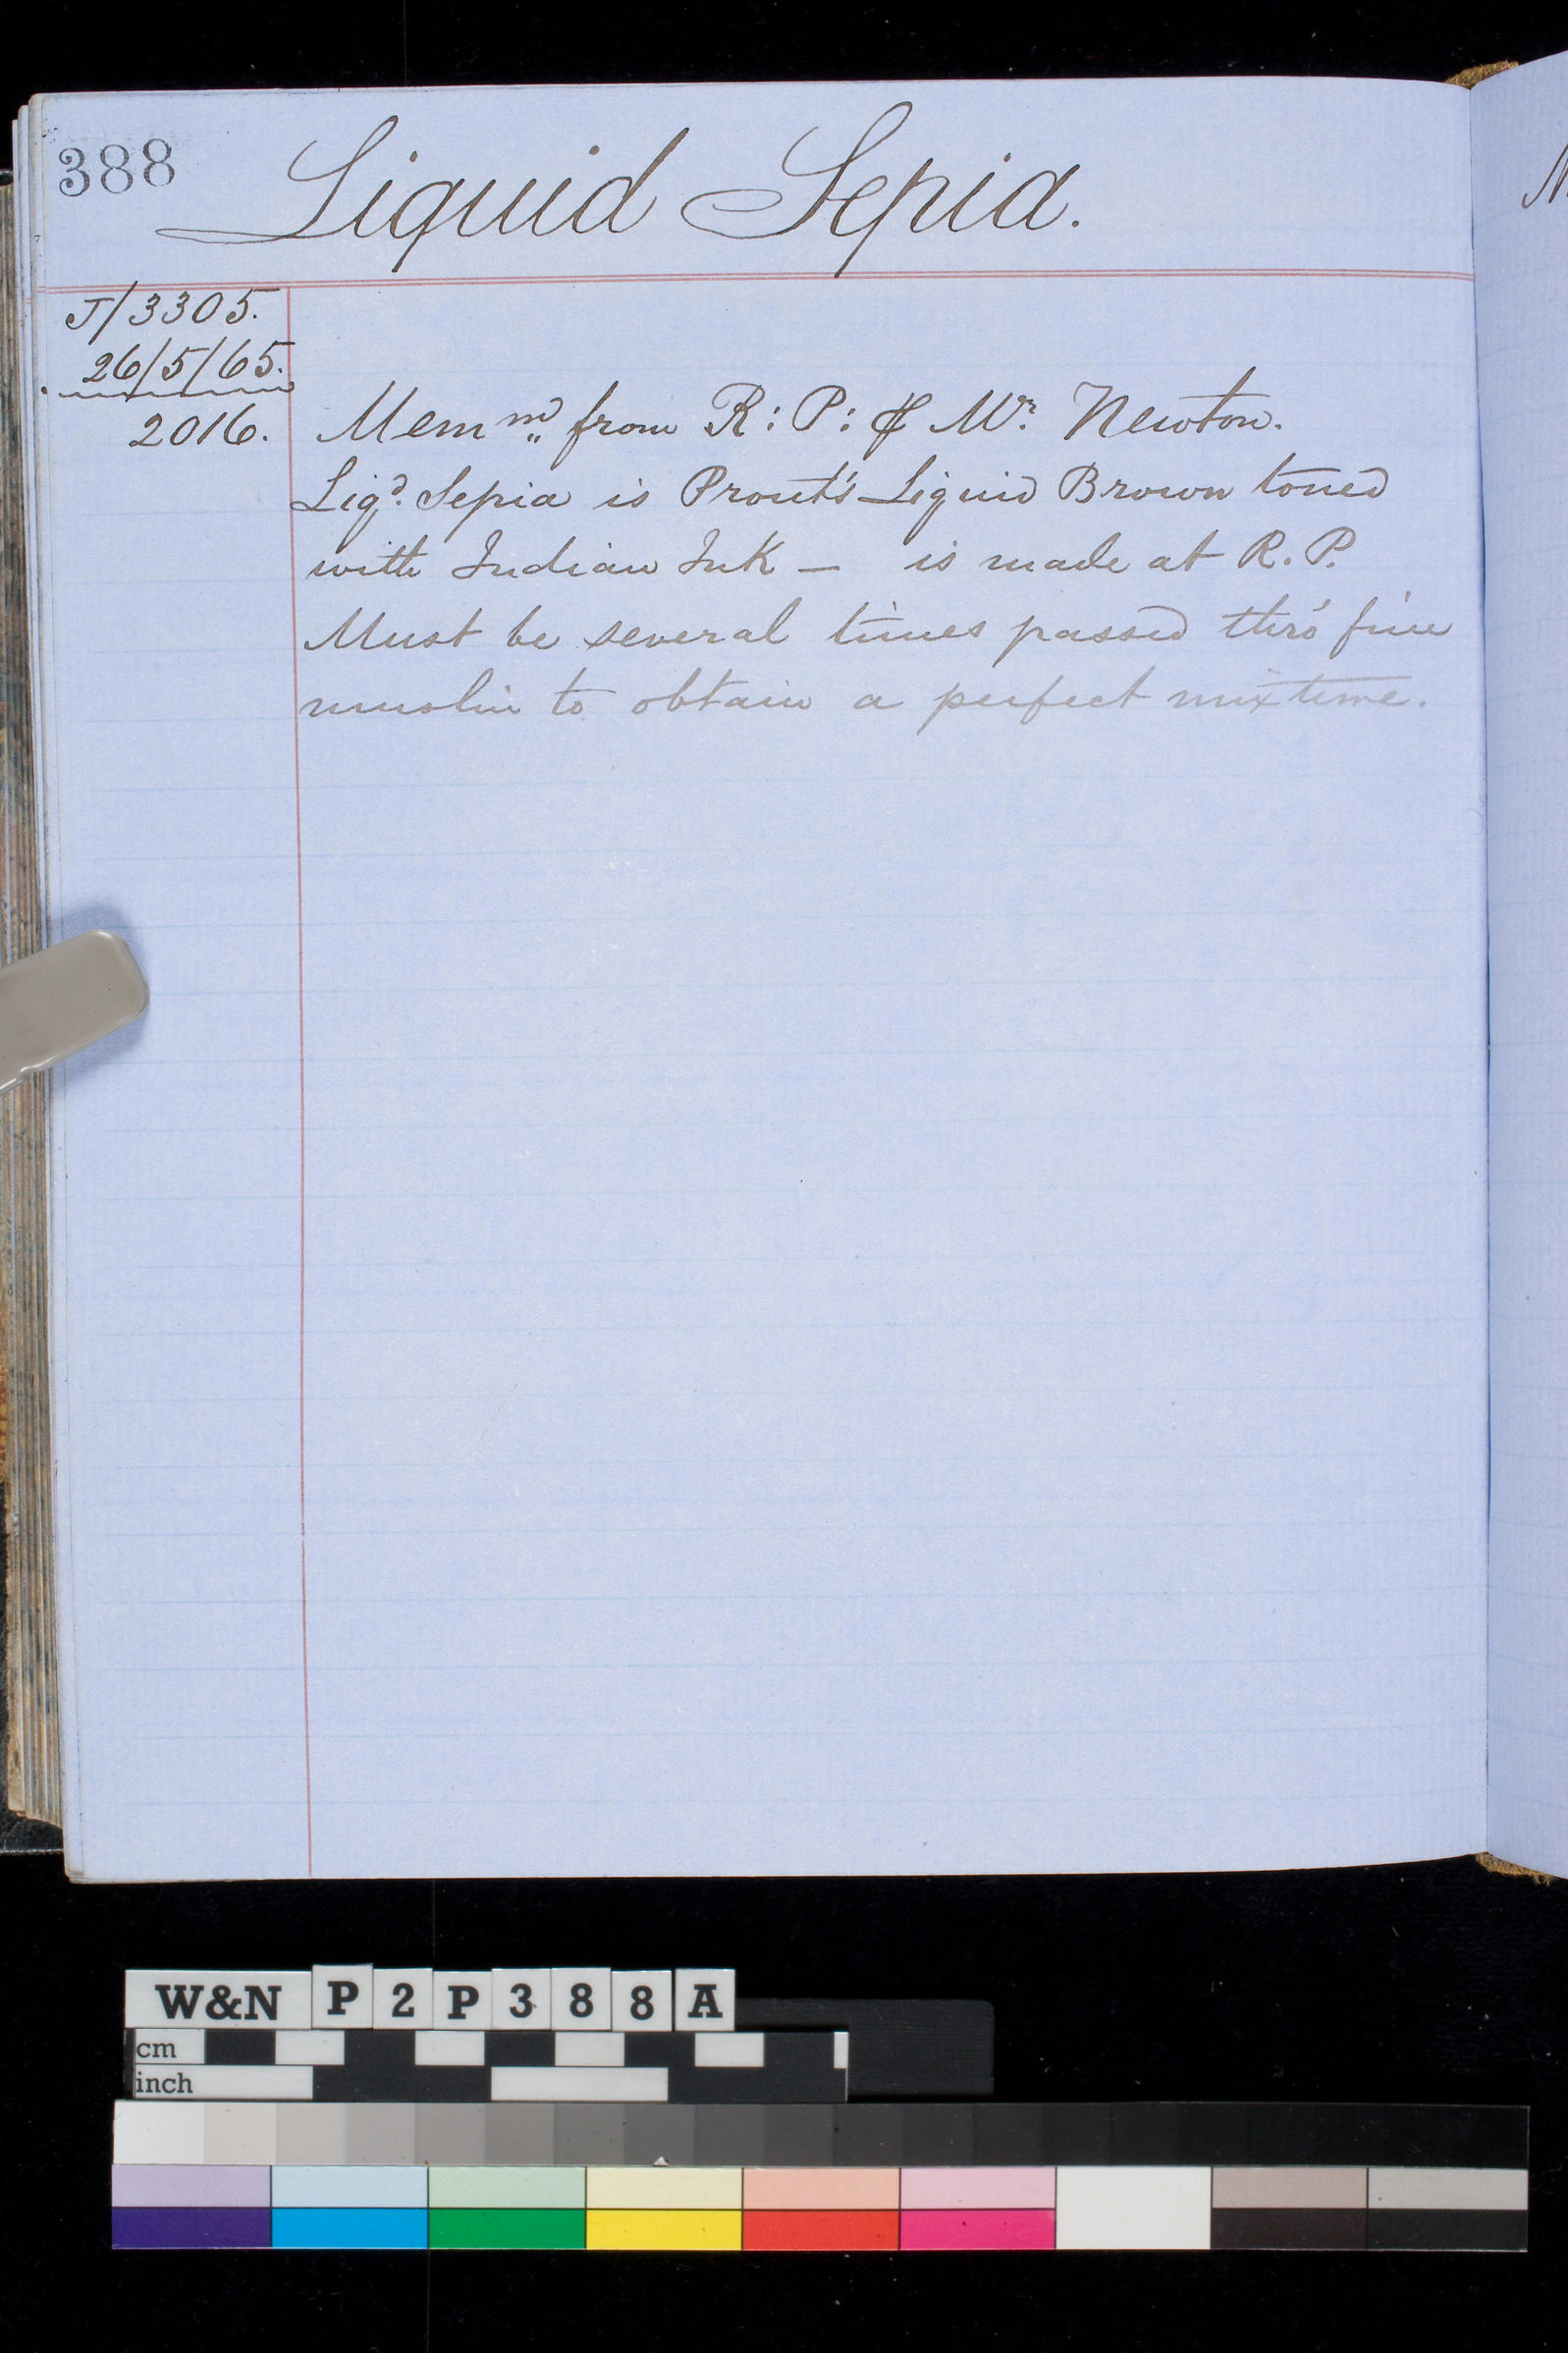 388
Liquid Sepia.
J/3305.
26/5/65.
2016.
Memm from R: P: & Mr. Newton.
Liqd. Sepia is Prout's Liquid Brown toned
with Indian Ink — is made at R. P.
Must be several times passed thro' fine
muslin to obtain a perfect mixture.
W&N P2P388A
cm
inch